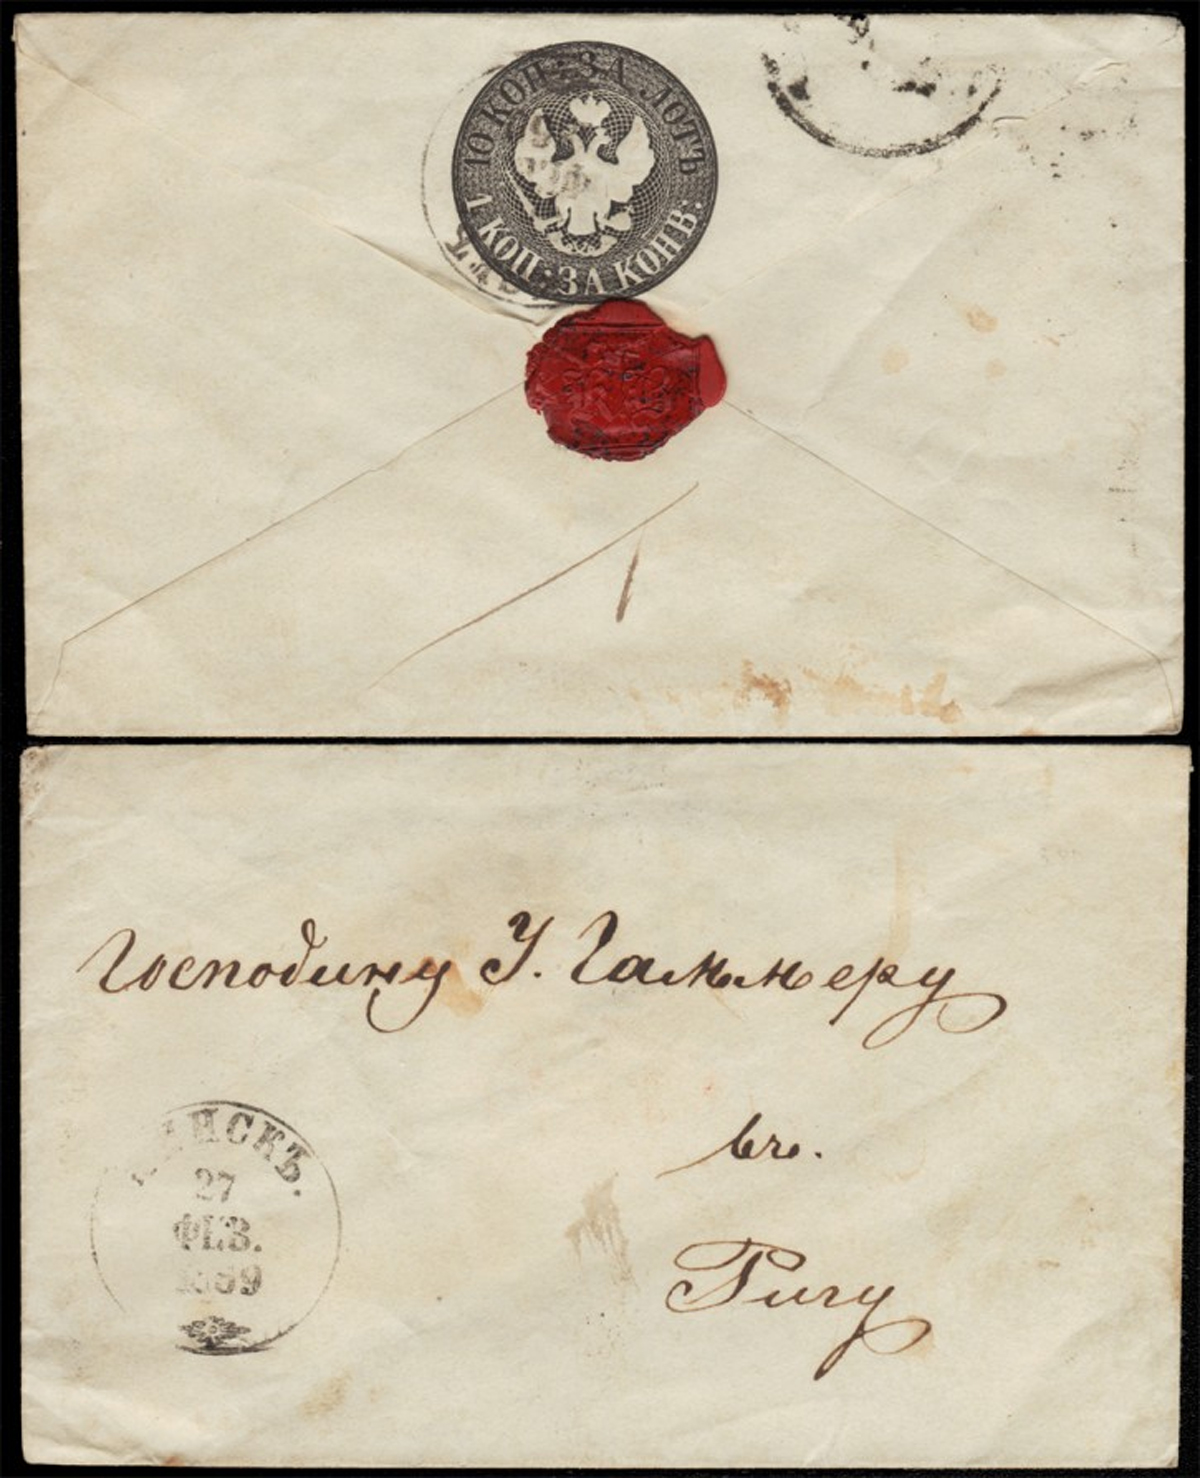 10 КОП: ЗА ЛОТЪ
1 КОП: ЗА КОНВ:
Господину У. Гаммеру
въ.
Ригу
27
ФЕВ.
1869